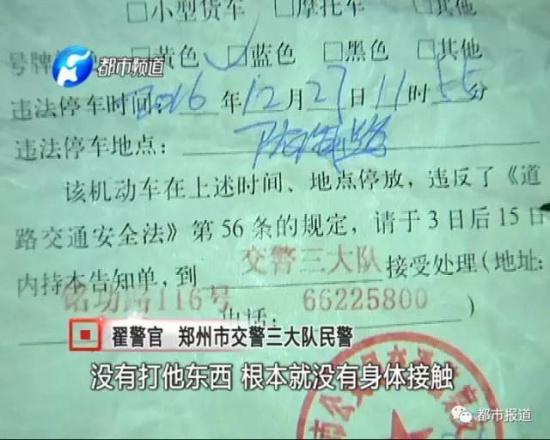 □小型货车 □摩托车 □其他
□黄色 □蓝色 □黑色 □其他
都市频道
违法停车时间：2016年12月27日11时55分
违法停车地点：
该机动车在上述时间、地点停放，违反了《道
路交通安全法》第56条的规定，请于3日后15日
内持本告知单，到 交警三大队 接受处理（地址：
铭功路116号 电话：66225800）
翟警官 郑州市交警三大队民警
没有打他东西 根本就没有身体接触
都市报道